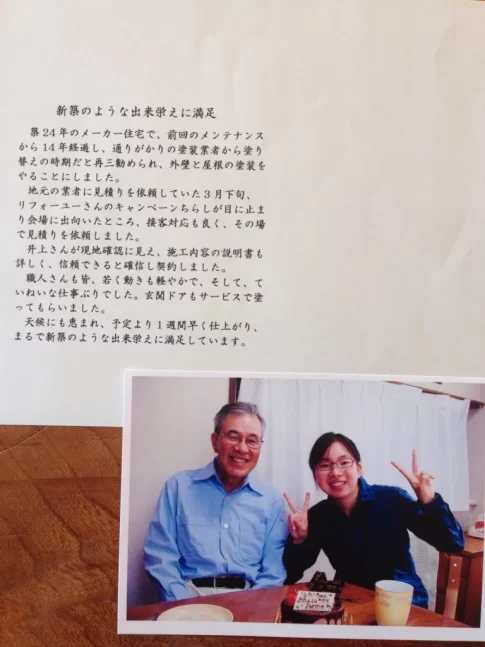 新築のような出来栄えに満足
築24年のメーカー住宅で、前回のメンテナンス
から14年経過し、通りがかりの塗装業者から塗り
替えの時期だと再三勧められ、外壁と屋根の塗装を
やることにしました。
地元の業者に見積りを依頼していた3月下旬、
リフォーユーさんのキャンペーンちらしが目に止ま
り会場に出向いたところ、接客対応も良く、その場
で見積りを依頼しました。
井上さんが現地確認に見え、施工内容の説明書も
詳しく、信頼できると確信し契約しました。
職人さんも皆、若く動きも軽やかで、そして、て
いねいな仕事ぶりでした。玄関ドアもサービスで塗
ってもらいました。
天候にも恵まれ、予定より1週間早く仕上がり、
まるで新築のような出来栄えに満足しています。